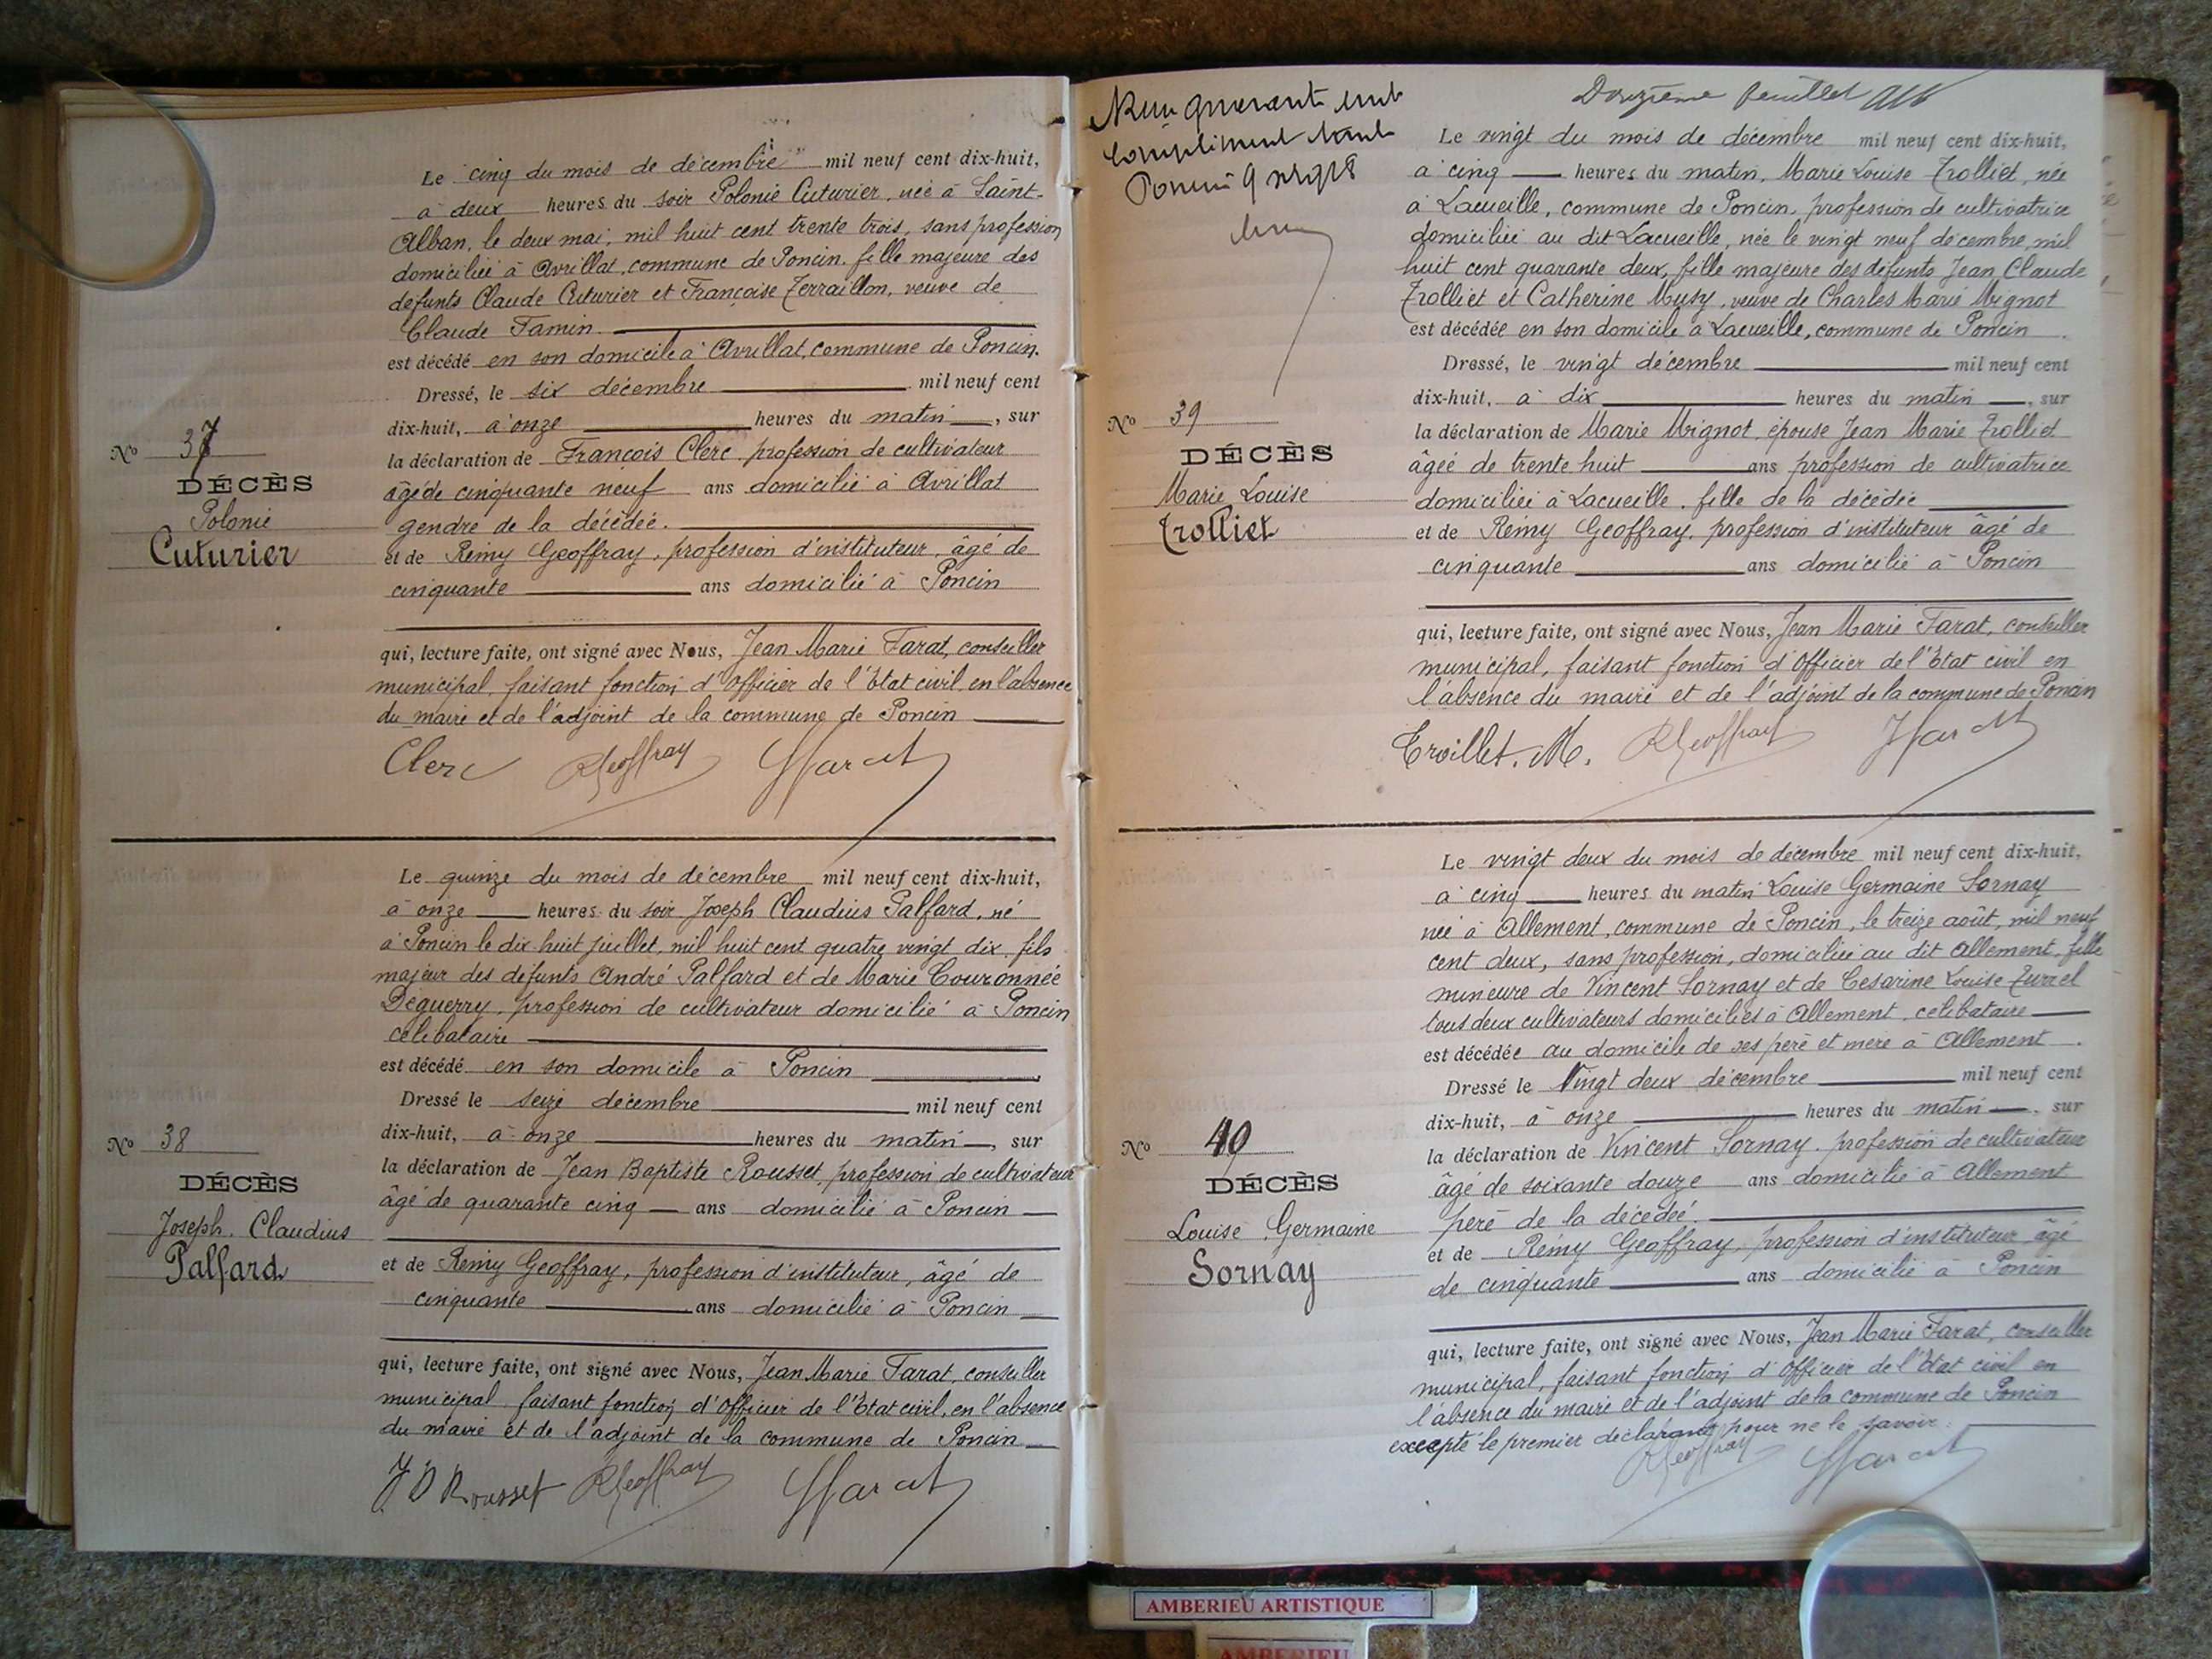 Le cinq du mois de décembre mil neuf cent dix-huit,
à deux heures du soir Polonie Cuturier, née à Saint-
Alban, le deux mai, mil huit cent trente trois, sans profession
domiciliée à Avrillat, commune de Poncin, fille majeure des
défunts Claude Cuturier et Françoise Terraillon, veuve de
Claude Famin.
est décédé en son domicile à Avrillat, commune de Poncin.
Dressé, le six décembre mil neuf cent
dix-huit, à onze heures du matin, sur
la déclaration de François Clerc profession de cultivateur
âgé de cinquante neuf ans domicilié à Avrillat
gendre de la décédée.
et de Rémy Geoffray, profession d'instituteur, âgé de
cinquante ans domicilié à Poncin
qui, lecture faite, ont signé avec Nous, Jean Marie Farat, conseiller
municipal, faisant fonction d'officier de l'Etat civil, en l'absence
du maire et de l'adjoint de la commune de Poncin
Clerc RGeoffray JFarat
No 37
DÉCÈS
Polonie
Cuturier
Le quinze du mois de décembre mil neuf cent dix-huit,
à onze heures du soir Joseph Claudius Palfard, né
à Poncin le dix huit juillet, mil huit cent quatre vingt dix, fils
majeur des défunts André Palfard et de Marie Couronnée
Déguerry, profession de cultivateur domicilié à Poncin
célibataire
est décédé en son domicile à Poncin
Dressé le seize décembre mil neuf cent
dix-huit, à onze heures du matin, sur
la déclaration de Jean Baptiste Rousset, profession de cultivateur
âgé de quarante cinq ans domicilié à Poncin
et de Rémy Geoffray, profession d'instituteur, âgé de
cinquante ans domicilié à Poncin
qui, lecture faite, ont signé avec Nous, Jean Marie Farat, conseiller
municipal faisant fonction d'Officier de l'Etat civil, en l'absence
du maire et de l'adjoint de la commune de Poncin
J B Rousset RGeoffray JFarat
No 38
DÉCÈS
Joseph. Claudius
Palfard
Douzième feuillet
Le vingt du mois de décembre mil neuf cent dix-huit,
à cinq heures du matin, Marie Louise Trolliet, née
à Lacueille, commune de Poncin, profession de cultivatrice
domiciliée au dit Lacueille, née le vingt neuf décembre, mil
huit cent quarante deux, fille majeure des défunts Jean Claude
Trolliet et Catherine Musy, veuve de Charles Marie Mignot
est décédée en son domicile à Lacueille, commune de Poncin
Dressé, le vingt décembre mil neuf cent
dix-huit, à dix heures du matin, sur
la déclaration de Marie Mignot, épouse Jean Marie Trolliet
âgée de trente huit ans profession de cultivatrice
domiciliée à Lacueille. fille de la décédée
et de Rémy Geoffray, profession d'instituteur âgé de
cinquante ans domicilié à Poncin
qui, lecture faite, ont signé avec Nous, Jean Marie Farat, conseiller
municipal, faisant fonction d'Officier de l'Etat civil en
l'absence du maire et de l'adjoint de la commune de Poncin
Troillet. M. RGeoffray JFarat
No 39
DÉCÈS
Marie Louise
Trolliet
Le vingt deux du mois de décembre mil neuf cent dix-huit,
à cinq heures du matin Louise Germaine Sornay
née à Allement, commune de Poncin, le treize août, mil neuf
cent deux, sans profession, domiciliée au dit Allement, fille
mineure de Vincent Sornay et de Cesarine Louise Turrel
tous deux cultivateurs domiciliés à Allement, célibataire
est décédée au domicile de ses père et mère à Allement.
Dressé le Vingt deux décembre mil neuf cent
dix-huit, à onze heures du matin, sur
la déclaration de Vincent Sornay, profession de cultivateur
âgé de soixante douze ans domicilié à Allement
père de la décédée.
et de Rémy Geoffray, profession d'instituteur âgé
de cinquante ans domicilié à Poncin
qui, lecture faite, ont signé avec Nous, Jean Marie Farat, conseiller
municipal, faisant fonction d'Officier de l'Etat civil en
l'absence du maire et de l'adjoint de la commune de Poncin
excepté le premier déclarant pour ne le savoir.
RGeoffray JFarat
No 40
DÉCÈS
Louise Germaine
Sornay
AMBERIEU ARTISTIQUE
AMBERIEU